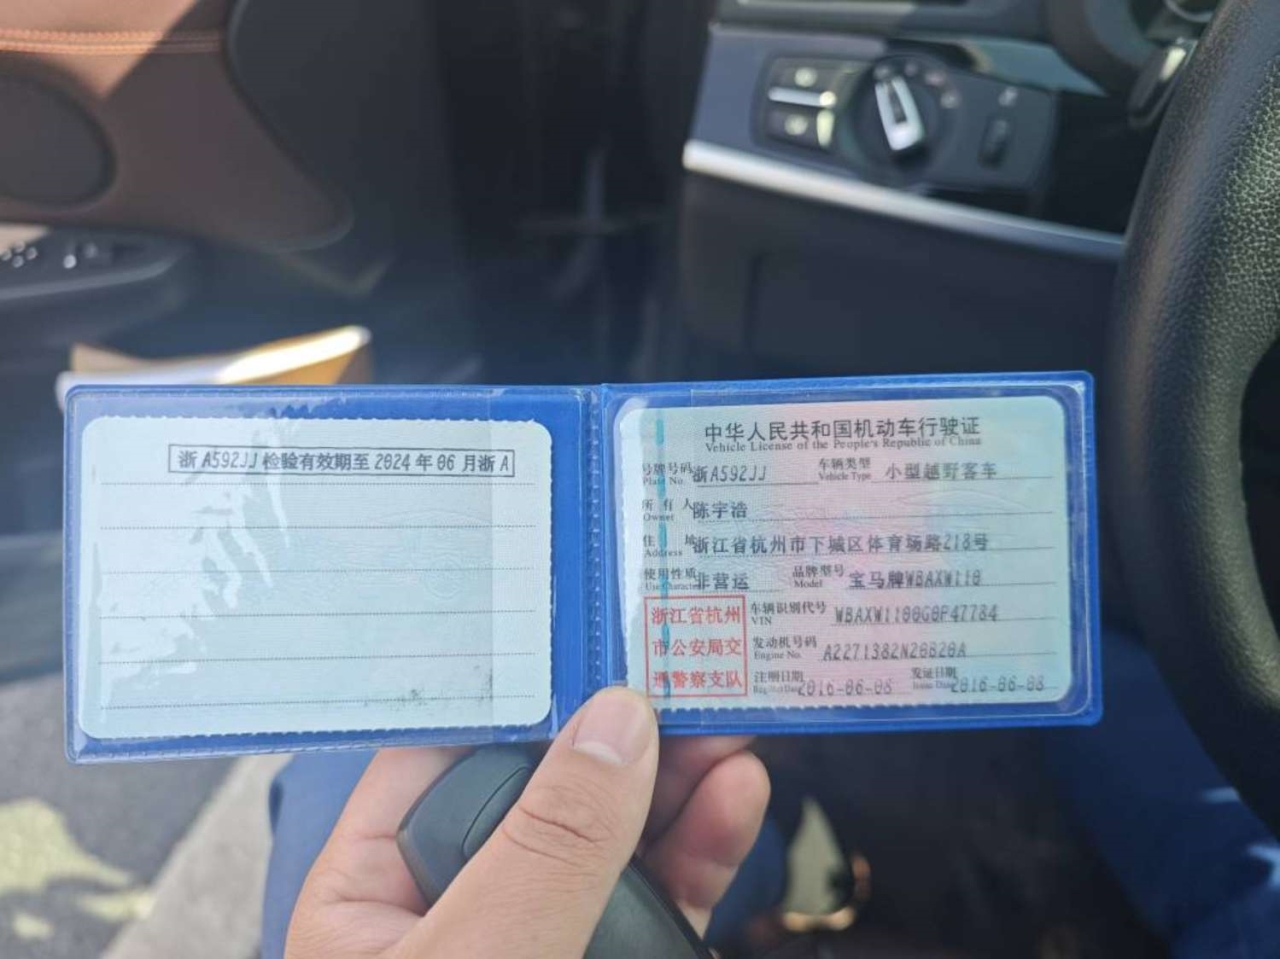 浙A592JJ检验有效期至2024年06月浙A
中华人民共和国机动车行驶证
Vehicle License of the People's Republic of China
号牌号码 浙A592JJ 车辆类型 小型越野客车
Plate No. Vehicle Type
所有人 陈宇浩
Owner
住址 浙江省杭州市下城区体育场路218号
Address
使用性质 非营运 品牌型号 宝马牌WBAXW110
Use Character Model
浙江省杭州
市公安局交
通警察支队
车辆识别代号 WBAXW1100G0P47784
VIN
发动机号码 A2271382N20B20A
Engine No.
注册日期 2016-06-08 发证日期 2016-06-08
Register Date Issue Date